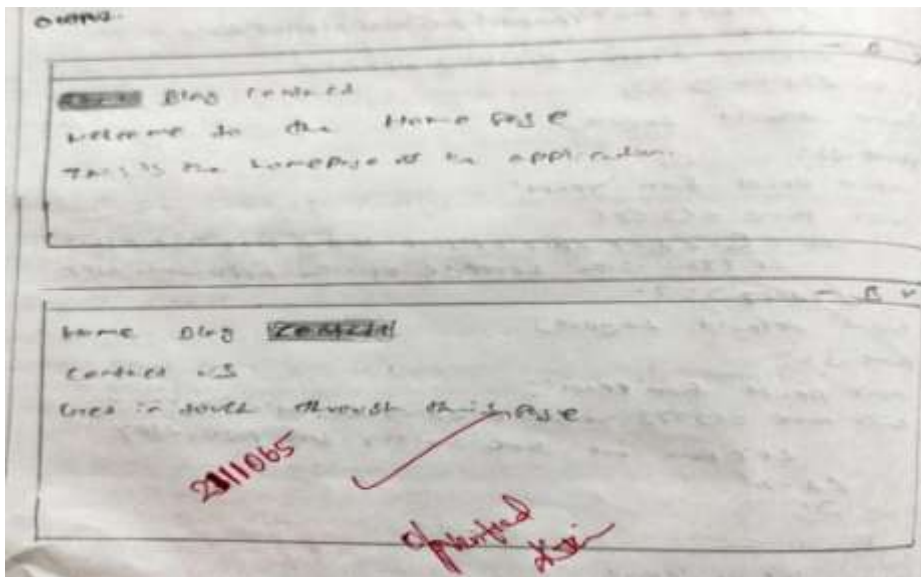 output.
Home Blog Contact
Welcome to the Home Page
This is the homepage of the application.
Home Blog Contact
Contact us
in touch through this page
2111065